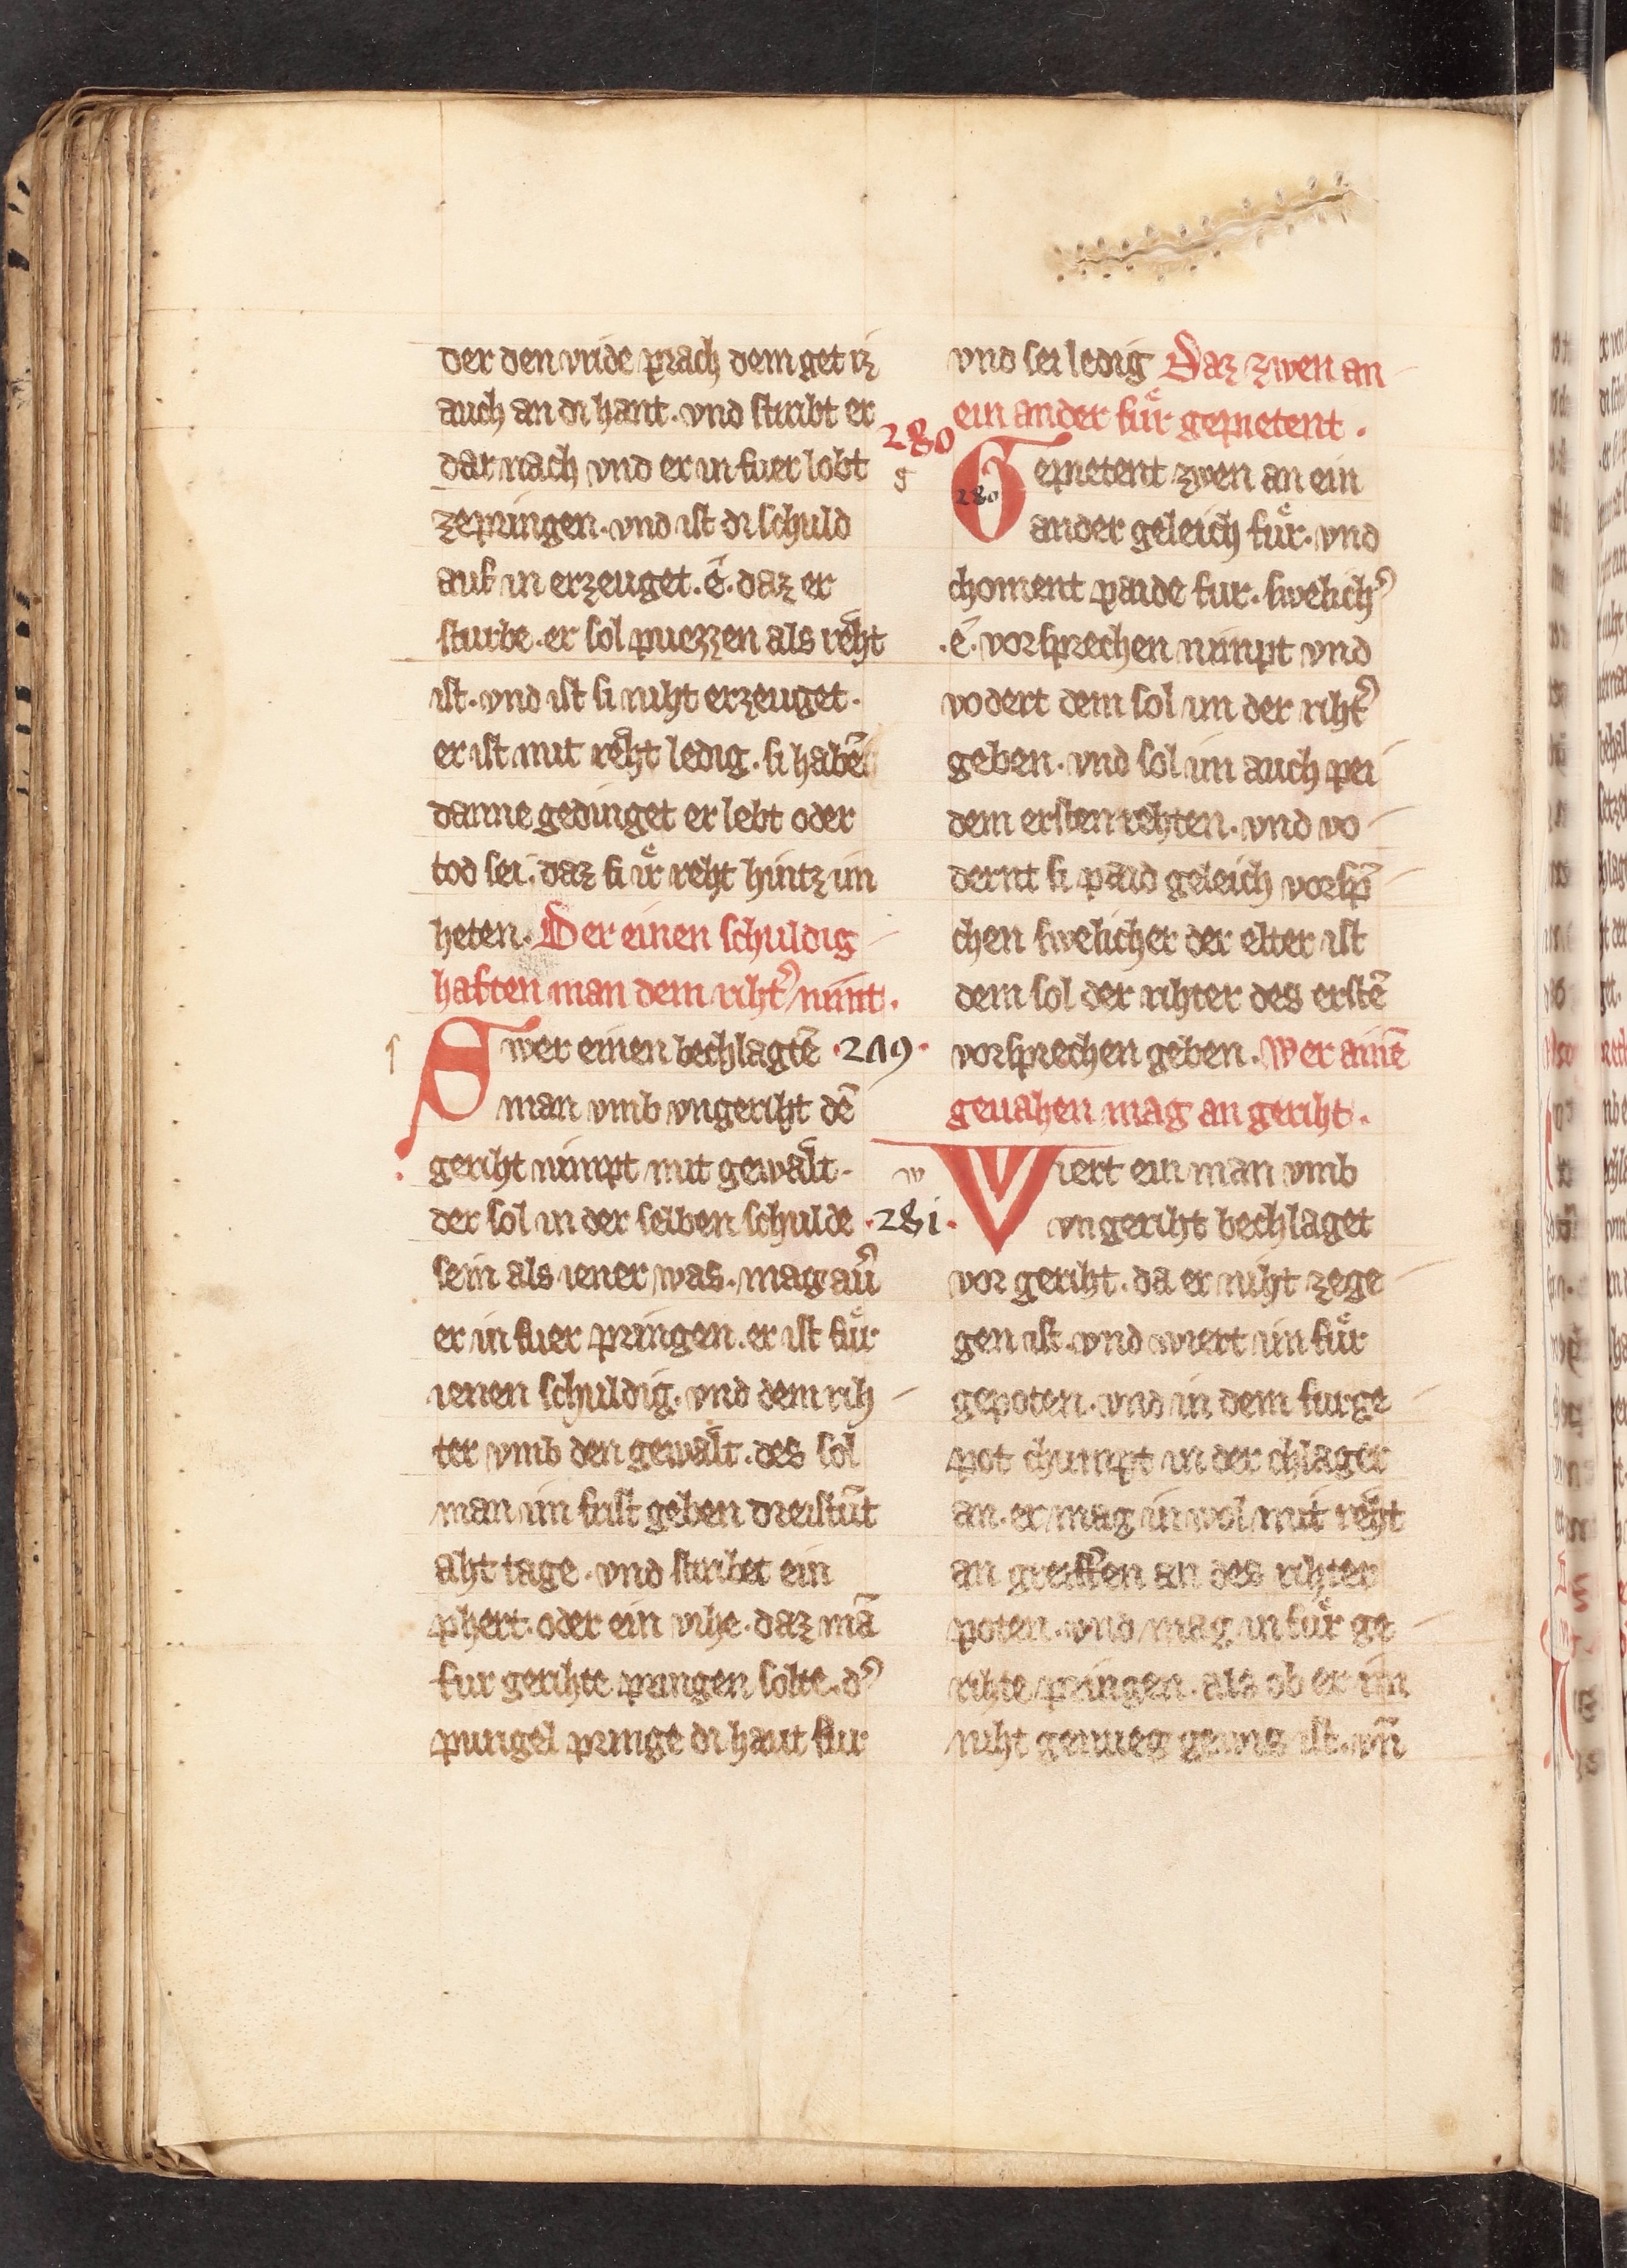 der den vride prach dem get iz
auch an di hant · vnd stirbt er
dar nach vnd er in fuer lobt
zepringen · vnd ist di schuld
auf in erzeuget · ê · daz er
sturbe · er sol puezzen als reht
ist · vnd ist si niht erzeuget ·
er ist mit reht ledig · si habē
danne gedinget er lebt oder
tod sei · daz si ir reht hintz im
heten · Der einen schuldig
haften man dem riht᾽ nimt ·
Swer einen bechlagtē · 279 ·
man vmb vngeriht dē
geriht nimpt mit gewalt ·
der sol in der selben schulde
sein als iener was · mag au᾽
er in fuer pringen · er ist fuͤr
ienen schuldig · vnd dem rih
ter vmb den gewalt · des sol
man im frist geben dreistūt
aht tage · vnd stirbet ein
phert · oder ein vihe · daz mā
fur gerihte pringen solte · d᾽
purigel pringe di haut fur
vnd sei ledig Daz zwen an
ein ander fuͤr gepietent ·
280
g
280
Gepietent zwen an ein
ander geleich fuͤr · vnd
choment paide fur · swelich᾽
· ê · vorsprechen nimpt vnd
vodert dem sol im der riht᾽
geben · vnd sol im auch pei
dem ersten rehten · vnd vo
dernt si paid geleich vorsp̄
chen swelicher der elter ist
dem sol der rihter des erstē
vorsprechen geben · Wer ainē
geuahen mag an geriht ·
w
· 281 ·
Wiert ein man vmb
vngeriht bechlaget
vor geriht · da er niht zege
gen ist · vnd wiert im fuͤr
gepoten · vnd in dem furge
pot chumpt in der chlager
an · er mag in wol mit reht
an greiffen an des rihter
poten · vnd mag in fuͤr ge
rihte pringen · als ob er im
niht genueg gewis ist · vn̄